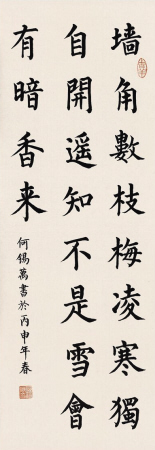 墙角數枝梅凌寒獨
自開遥知不是雪會
有暗香来
何锡萬書於丙申年春